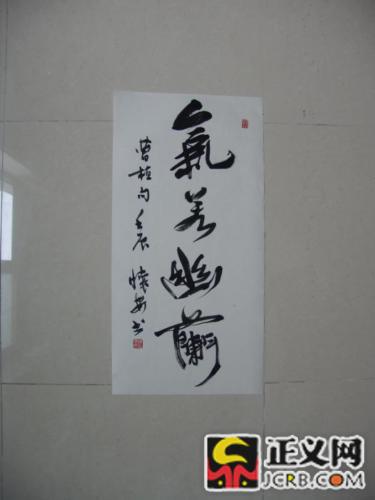 氣若幽蘭
曹植句 壬辰 懷安書
正义网
JCRB.COM